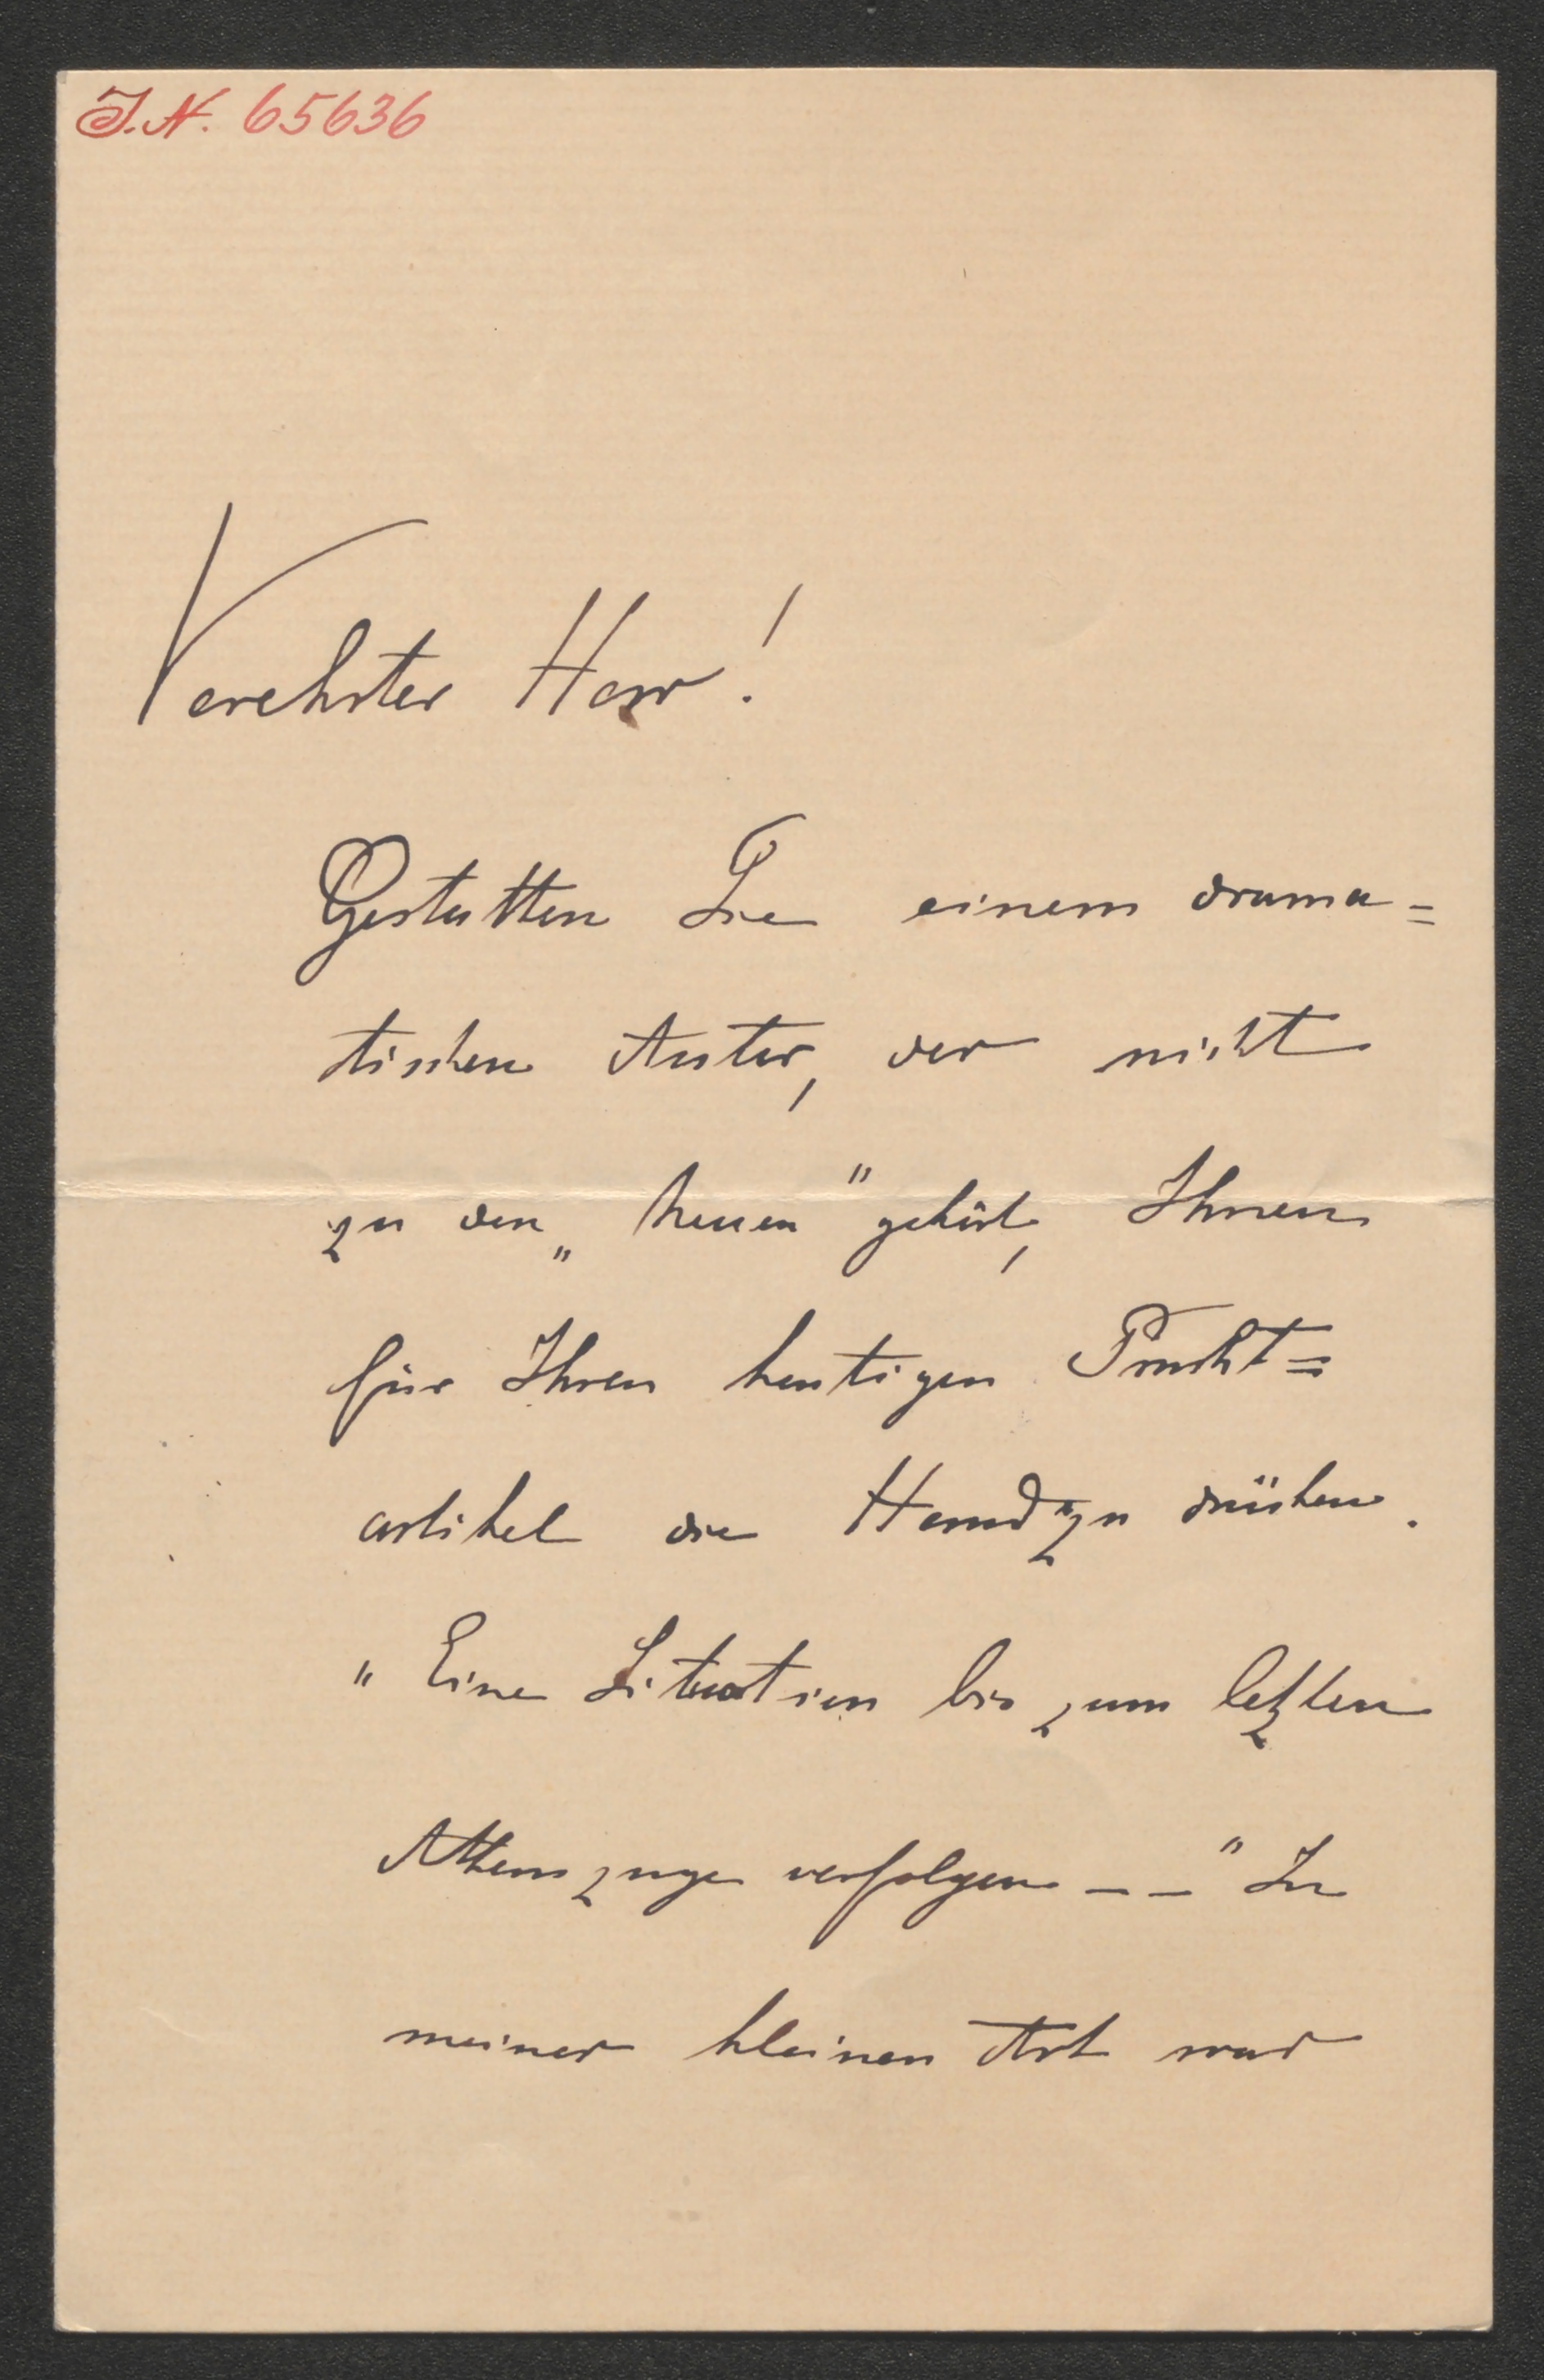 J.N. 65636
Verehrter Herr!
Gestatten Sie einem drama=
tischen Autor, der nicht
zu den „Neuen“ gehört, Ihnen
für Ihren heutigen Pracht=
artikel die Hand zu drücken.
"Eine Situation bis zum letzten
Athemzuge verfolgen – –" In
meiner kleinen Art war